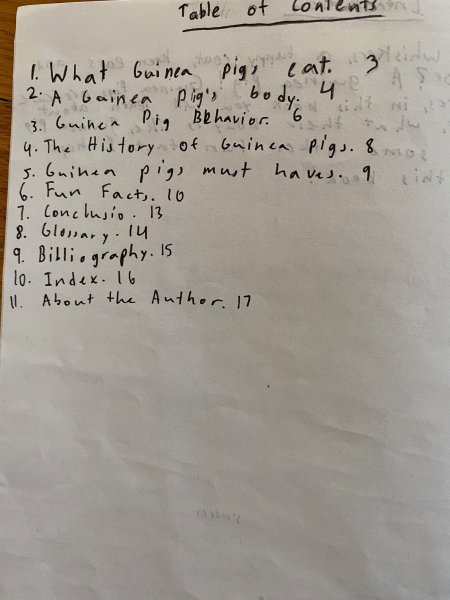 Table of Contents
1. What Guinea pigs eat. 3
2. A Gainea pig's body. 4
3. Guinea Pig Behavior. 6
4. The History of Guinea Pigs. 8
5. Guinea pigs must haves. 9
6. Fun Facts. 10
7. Conclusio. 13
8. Glossary. 14
9. Billiography. 15
10. Index. 16
11. About the Author. 17